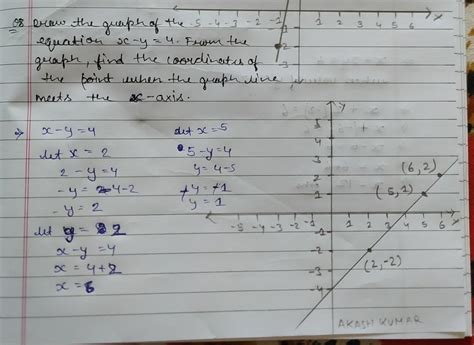 Q8 Draw the graph of the
equation x-y=4. From the
graph, find the coordinates of
the point when the graph line
meets the x-axis.
=> x-y=4
let x = 2
2-y=4
-y=4-2
-y=2
let y=2
x-y=4
x=4+2
x=6
let x=5
5-y=4
y=4-5
y=-1
y=1
-5 -4 -3 -2 -1
-2
-3
y
5
4
3
2
1
-5 -4 -3 -2 -1
1 2 3 4 5 6 x
-1
-2
-3
-4
(6,2)
(5,1)
(2,-2)
AKASH KUMAR